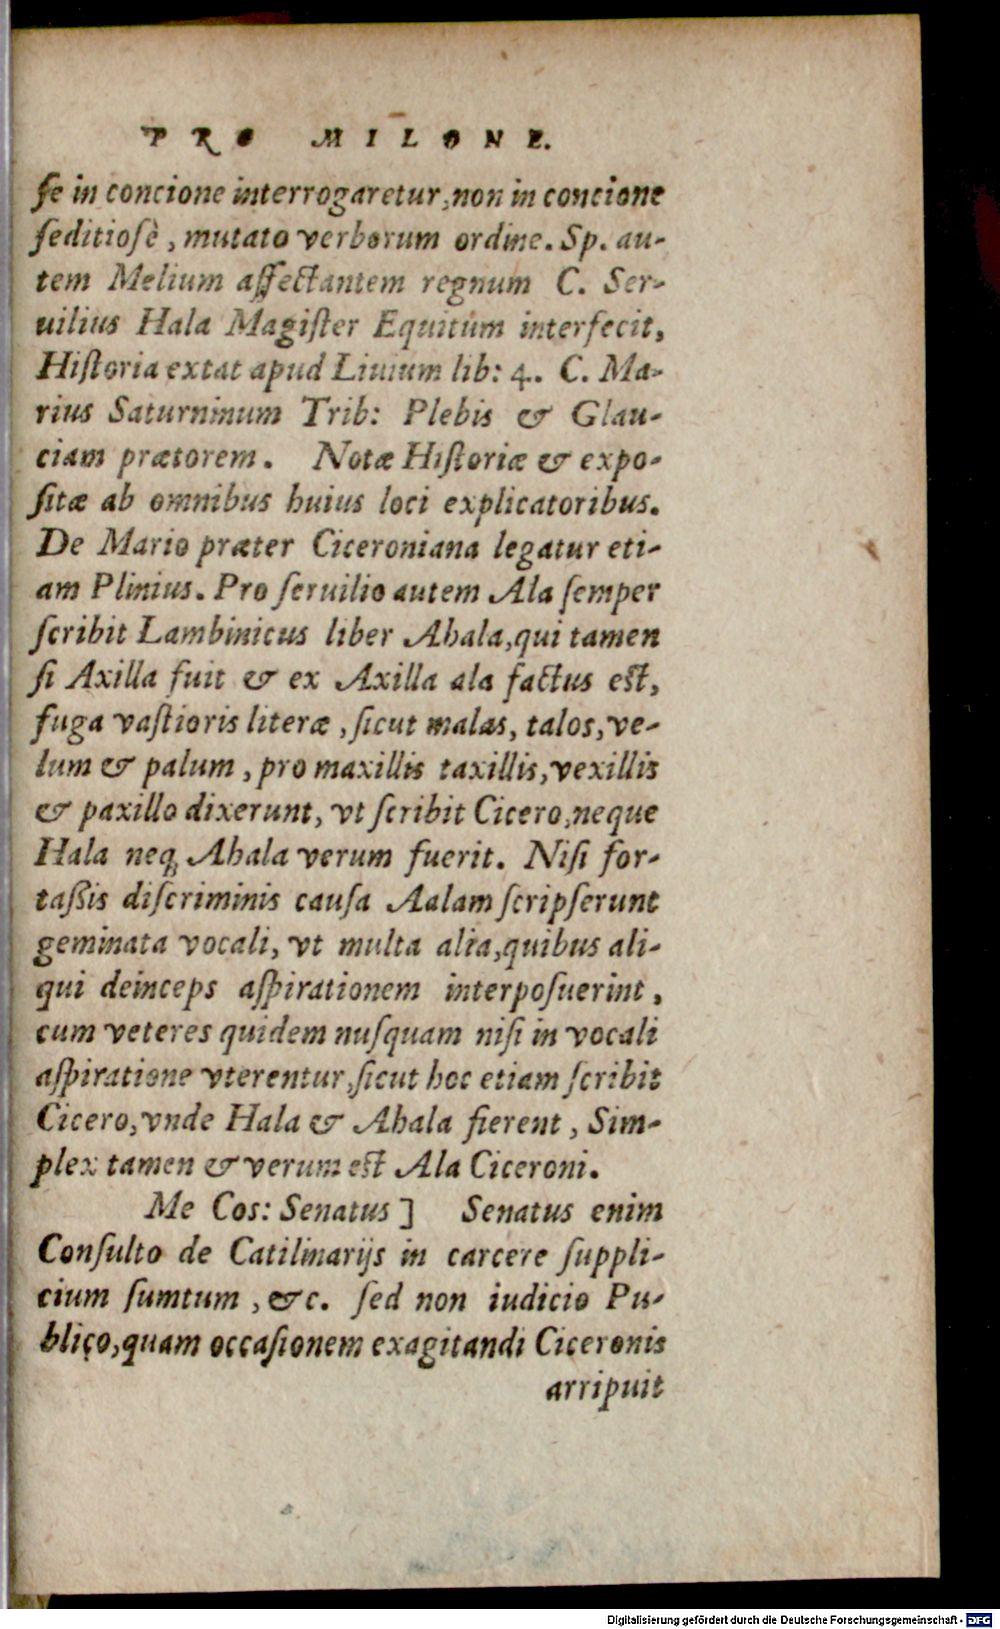 PRO MILONE.
ſe in concione interrogaretur, non in concione
ſeditioſè, mutato verborum ordine. Sp. au-
tem Melium affectantem regnum C. Ser-
uilius Hala Magiſter Equitum interfecit,
Hiſtoria extat apud Liuium lib: 4. C. Ma-
rius Saturninum Trib: Plebis & Glau-
ciam prætorem. Notæ Hiſtoriæ & expo-
ſitæ ab omnibus huius loci explicatoribus.
De Mario præter Ciceroniana legatur eti-
am Plinius. Pro ſeruilio autem Ala ſemper
ſcribit Lambinicus liber Ahala, qui tamen
ſi Axilla fuit & ex Axilla ala factus eſt,
fuga vaſtioris literæ, ſicut malas, talos, ve-
lum & palum, pro maxillis taxillis, vexillis
& paxillo dixerunt, vt ſcribit Cicero, neque
Hala neq́ Ahala verum fuerit. Niſi for-
taßis diſcriminis cauſa Aalam ſcripſerunt
geminata vocali, vt multa alia, quibus ali-
qui deinceps aſpirationem interpoſuerint,
cum veteres quidem nuſquam niſi in vocali
aſpiratione vterentur, ſicut hoc etiam ſcribit
Cicero, vnde Hala & Ahala fierent, Sim-
plex tamen & verum eſt Ala Ciceroni.
Me Cos: Senatus] Senatus enim
Conſulto de Catilinarijs in carcere ſuppli-
cium ſumtum, &c. ſed non iudicio Pu-
blico, quam occaſionem exagitandi Ciceronis
arripuit
Digitalisierung gefördert durch die Deutsche Forschungsgemeinschaft - DFG